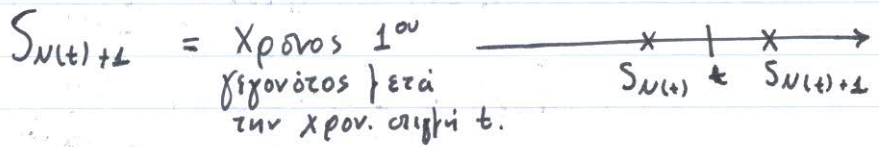 S_{N(t)+1} = Χρόνος 1^{ου}
γεγονότος μετά
την χρον. στιγμή t.
S_{N(t)} t S_{N(t)+1}